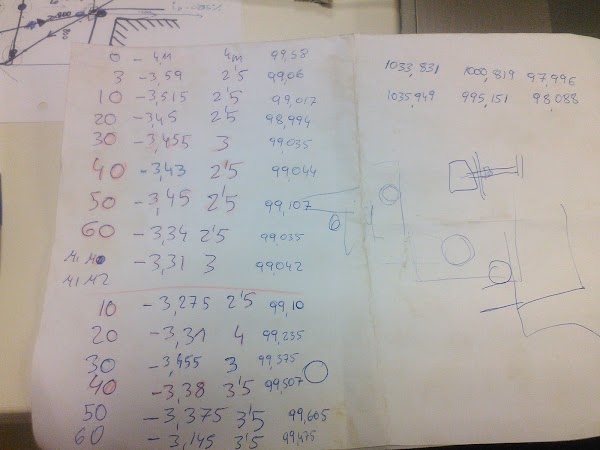 0 - 4m 4m 99,58
3 -3,59 2'5 99,06
10 -3,515 2'5 99,017
20 -3,45 2'5 98,994
30 -3,455 3 99,035
40 -3,43 2'5 99,044
50 -3,45 2'5 99,107
60 -3,34 2'5 99,035
M1 M2 -3,31 3 99,042
10 -3,275 2'5 99,10
20 -3,31 4 99,235
30 -3,455 3 99,375
40 -3,38 3'5 99,507
50 -3,375 3'5 99,605
60 -3,145 3'5 99,475
1033,831 1000,819 97,996
1035,949 995,151 98,088